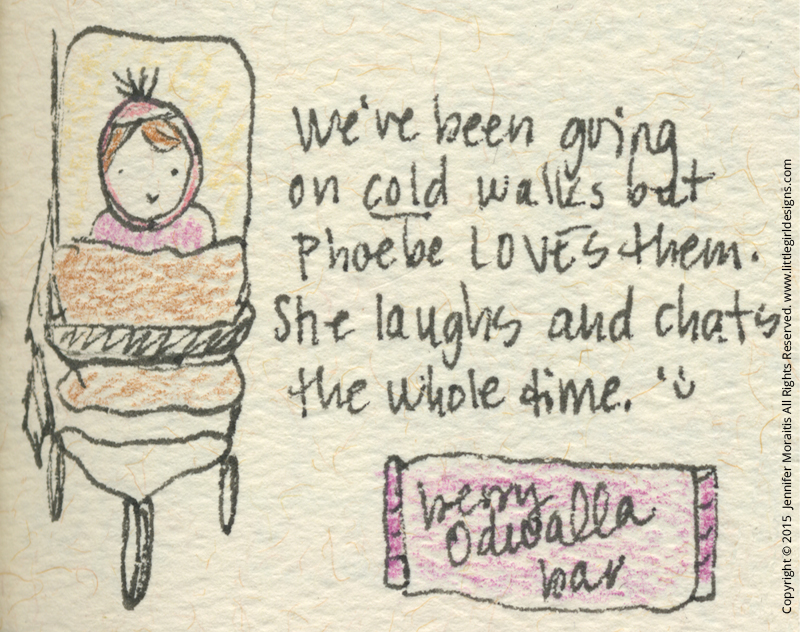 We've been going
on cold walks but
Phoebe LOVES them.
She laughs and chats
the whole time.
berry
Odwalla
bar
Copyright © 2015 Jennifer Moraitis All Rights Reserved. www.littlegirldesigns.com